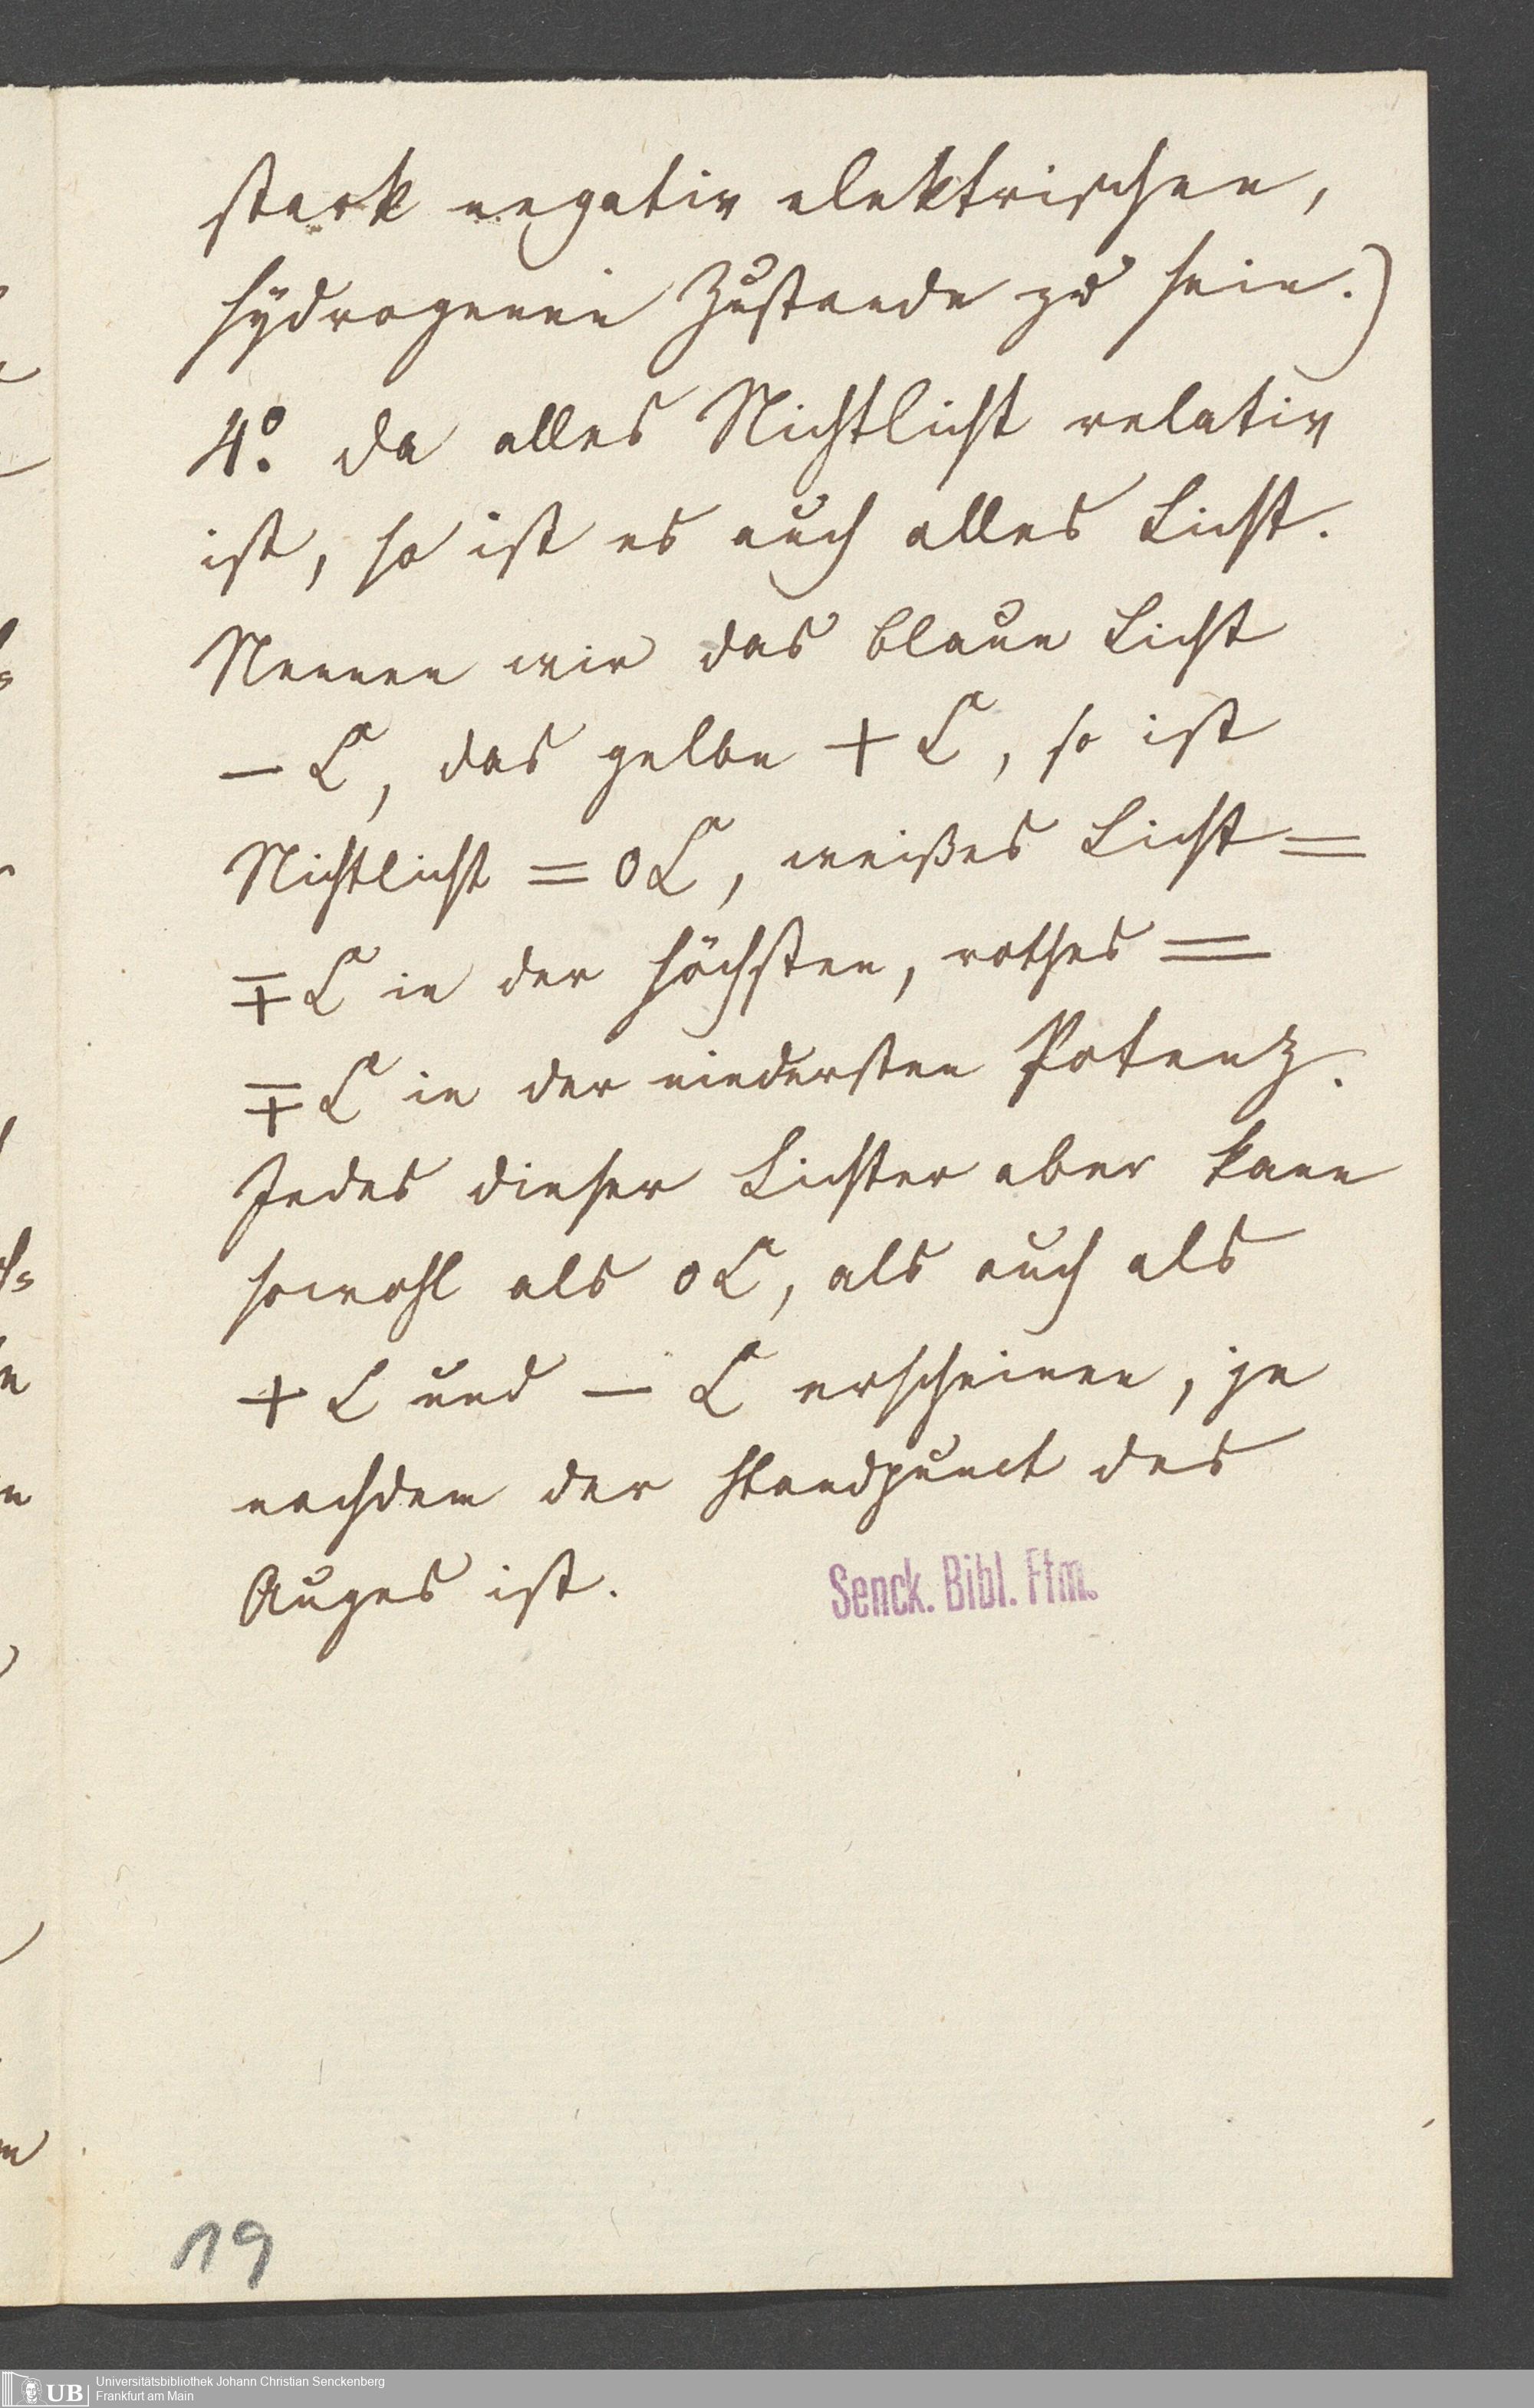 stark negativ elektrischen,
hydrogenen Zustande zu sein.)
4º. da alles Nichtlicht relativ
ist, so ist es auch alles Licht.
Nennen wir das blaue Licht
— L, das gelbe + L, so ist
Nichtlicht = 0L, weißes Licht =
∓ L in der höchsten, rothes =
∓ L in der niedersten Potenz.
Jedes dieser Lichter aber kann
sowohl als 0L, als auch als
+ L und — L erscheinen, je
nachdem der Standpunct des
Auges ist.
Senck. Bibl. Ffm.
19
UB
Universitätsbibliothek Johann Christian Senckenberg
Frankfurt am Main